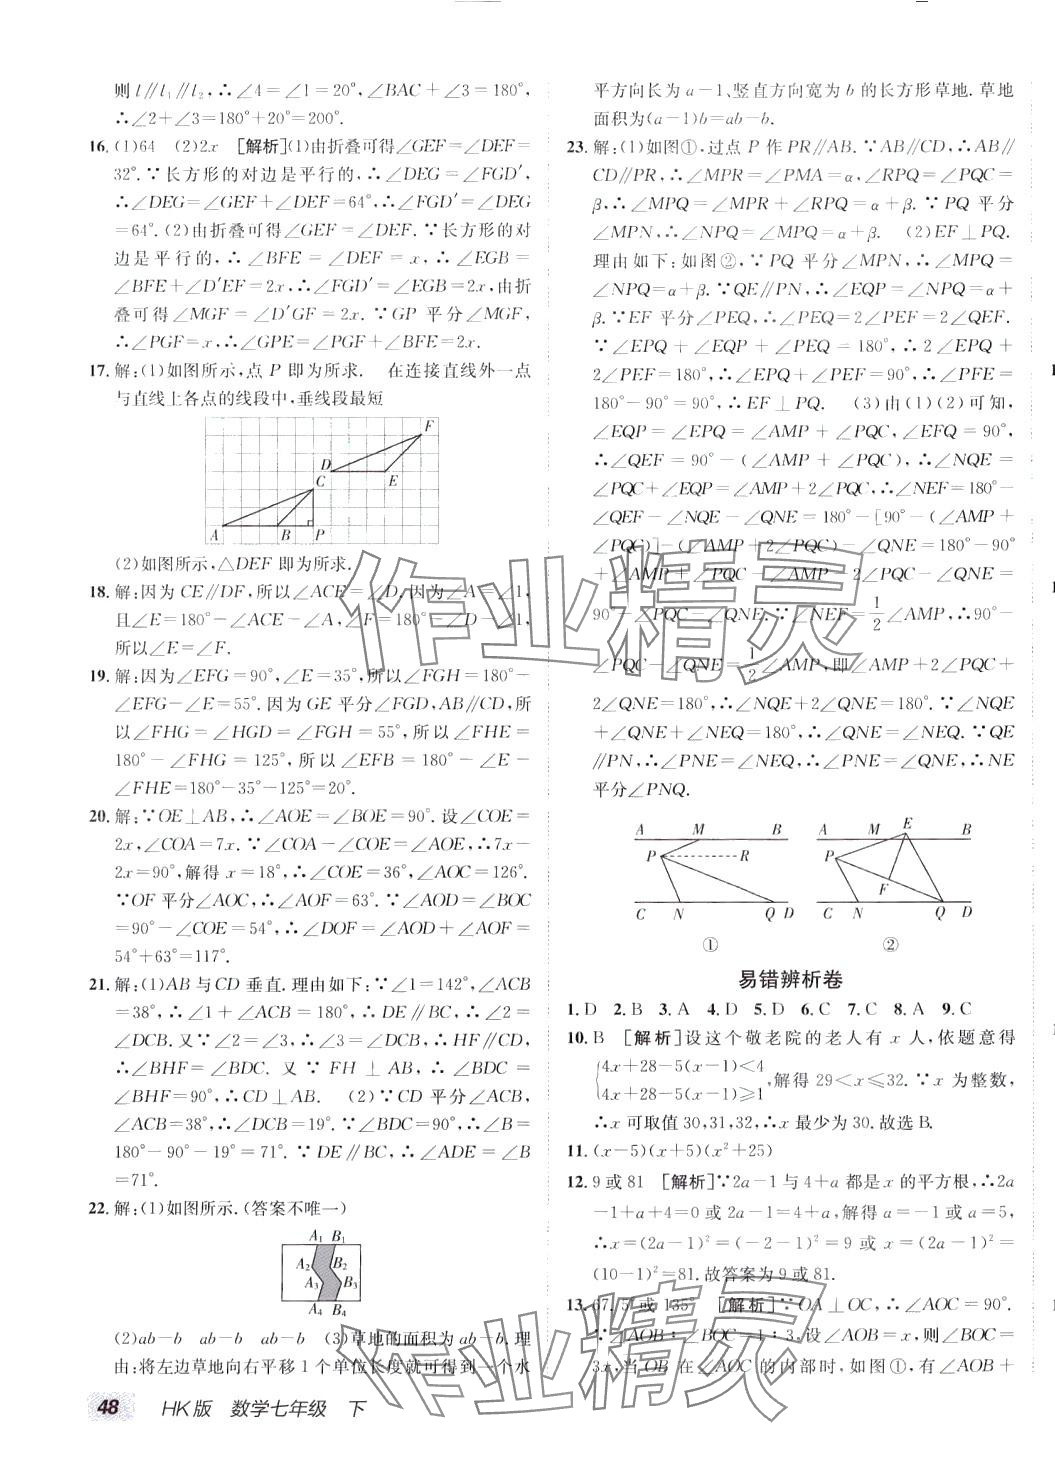 则l∥l₁∥l₂,∴∠4=∠1=20°,∠BAC+∠3=180°,
∴∠2+∠3=180°+20°=200°.
16. (1)64 (2)2x [解析](1)由折叠可得∠GEF=∠DEF=
32°.∵长方形的对边是平行的,∴∠DEG=∠FGD′,
∴∠DEG=∠GEF+∠DEF=64°,∴∠FGD′=∠DEG
=64°.(2)由折叠可得∠GEF=∠DEF.∵长方形的对
边是平行的,∴∠BFE=∠DEF=x,∴∠EGB=
∠BFE+∠D′EF=2x,∴∠FGD′=∠EGB=2x,由折
叠可得∠MGF=∠D′GF=2x.∵GP 平分∠MGF,
∴∠PGF=x,∴∠GPE=∠PGF+∠BFE=3x.
17. 解:(1)如图所示,点 P 即为所求. 在连接直线外一点
与直线上各点的线段中,垂线段最短
F
D
C
E
A
B
P
(2)如图所示,△DEF 即为所求.
18. 解:因为CE∥DF,所以∠ACE=∠D.因为∠A=∠1,
且∠E=180°-∠ACE-∠A,∠F=180°-∠D-∠1,
所以∠E=∠F.
19. 解:因为∠EFG=90°,∠E=35°,所以∠FGH=180°-
∠EFG-∠E=55°.因为GE平分∠FGD,AB∥CD,所
以∠FHG=∠HGD=∠FGH=55°,所以∠FHE=
180°-∠FHG=125°,所以∠EFB=180°-∠E-
∠FHE=180°-35°-125°=20°.
20. 解:∵OE⊥AB,∴∠AOE=∠BOE=90°.设∠COE=
2x,∠COA=7x.∵∠COA-∠COE=∠AOE,∴7x-
2x=90°,解得x=18°,∴∠COE=36°,∠AOC=126°.
∵OF平分∠AOC,∴∠AOF=63°.∵∠AOD=∠BOC
=90°-∠COE=54°,∴∠DOF=∠AOD+∠AOF=
54°+63°=117°.
21. 解:(1)AB与CD垂直.理由如下:∵∠1=142°,∠ACB
=38°,∴∠1+∠ACB=180°,∴DE∥BC,∴∠2=
∠DCB.又∵∠2=∠3,∴∠3=∠DCB,∴HF∥CD,
∴∠BHF=∠BDC.又∵FH⊥AB,∴∠BDC=
∠BHF=90°,∴CD⊥AB. (2)∵CD平分∠ACB,
∠ACB=38°,∴∠DCB=19°.∵∠BDC=90°,∴∠B=
180°-90°-19°=71°.∵DE∥BC,∴∠ADE=∠B
=71°.
22. 解:(1)如图所示.(答案不唯一)
A₁ B₁
A₂ B₂
A₃ B₃
A₄ B₄
(2)ab-b ab-b ab-b (3)草地的面积为ab-b.理
由:将左边草地向右平移1个单位长度就可得到一个水
48 HK版 数学七年级 下
平方向长为a-1、竖直方向宽为b的长方形草地.草地
面积为(a-1)b=ab-b.
23. 解:(1)如图①,过点P作PR∥AB.∵AB∥CD,∴AB∥
CD∥PR,∴∠MPR=∠PMA=α,∠RPQ=∠PQC=
β,∴∠MPQ=∠MPR+∠RPQ=α+β.∵PQ平分
∠MPN,∴∠NPQ=∠MPQ=α+β. (2)EF⊥PQ.
理由如下:如图②,∵PQ平分∠MPN,∴∠MPQ=
∠NPQ=α+β.∵QE∥PN,∴∠EQP=∠NPQ=α+
β.∵EF平分∠PEQ,∴∠PEQ=2∠PEF=2∠QEF.
∵∠EPQ+∠EQP+∠PEQ=180°,∴2∠EPQ+
2∠PEF=180°,∴∠EPQ+∠PEF=90°,∴∠PFE=
180°-90°=90°,∴EF⊥PQ. (3)由(1)(2)可知,
∠EQP=∠EPQ=∠AMP+∠PQC,∠EFQ=90°,
∴∠QEF=90°-(∠AMP+∠PQC),∴∠NQE=
∠PQC+∠EQP=∠AMP+2∠PQC,∴∠NEF=180°-
∠QEF-∠NQE-∠QNE=180°-[90°-(∠AMP+
∠PQC)]-(∠AMP+2∠PQC)-∠QNE=180°-90°
+∠AMP+∠PQC-∠AMP-2∠PQC-∠QNE=
90°-∠PQC-∠QNE.∵∠NEF=1/2∠AMP,∴90°-
∠PQC-∠QNE=1/2∠AMP,即∠AMP+2∠PQC+
2∠QNE=180°,∴∠NQE+2∠QNE=180°.∵∠NQE
+∠QNE+∠NEQ=180°,∴∠QNE=∠NEQ.∵QE
∥PN,∴∠PNE=∠NEQ,∴∠PNE=∠QNE,∴NE
平分∠PNQ.
A M B
P R
C N Q D
①
A M E B
P
F
C N Q D
②
易错辨析卷
1. D 2. B 3. A 4. D 5. D 6. C 7. C 8. A 9. C
10. B [解析]设这个敬老院的老人有x人,依题意得
{4x+28-5(x-1)<4
4x+28-5(x-1)≥1,解得29<x≤32.∵x为整数,
∴x可取值30,31,32,∴x最少为30.故选B.
11. (x-5)(x+5)(x²+25)
12. 9或81 [解析]∵2a-1与4+a都是x的平方根,∴2a
-1+a+4=0或2a-1=4+a,解得a=-1或a=5,
∴x=(2a-1)²=(-2-1)²=9或x=(2a-1)²=
(10-1)²=81.故答案为9或81.
13. 67.5°或135° [解析]∵OA⊥OC,∴∠AOC=90°.
∵∠AOB∶∠BOC=1∶3,设∠AOB=x,则∠BOC=
3x,当OB在∠AOC的内部时,如图①,有∠AOC+
作业精灵
作业精灵